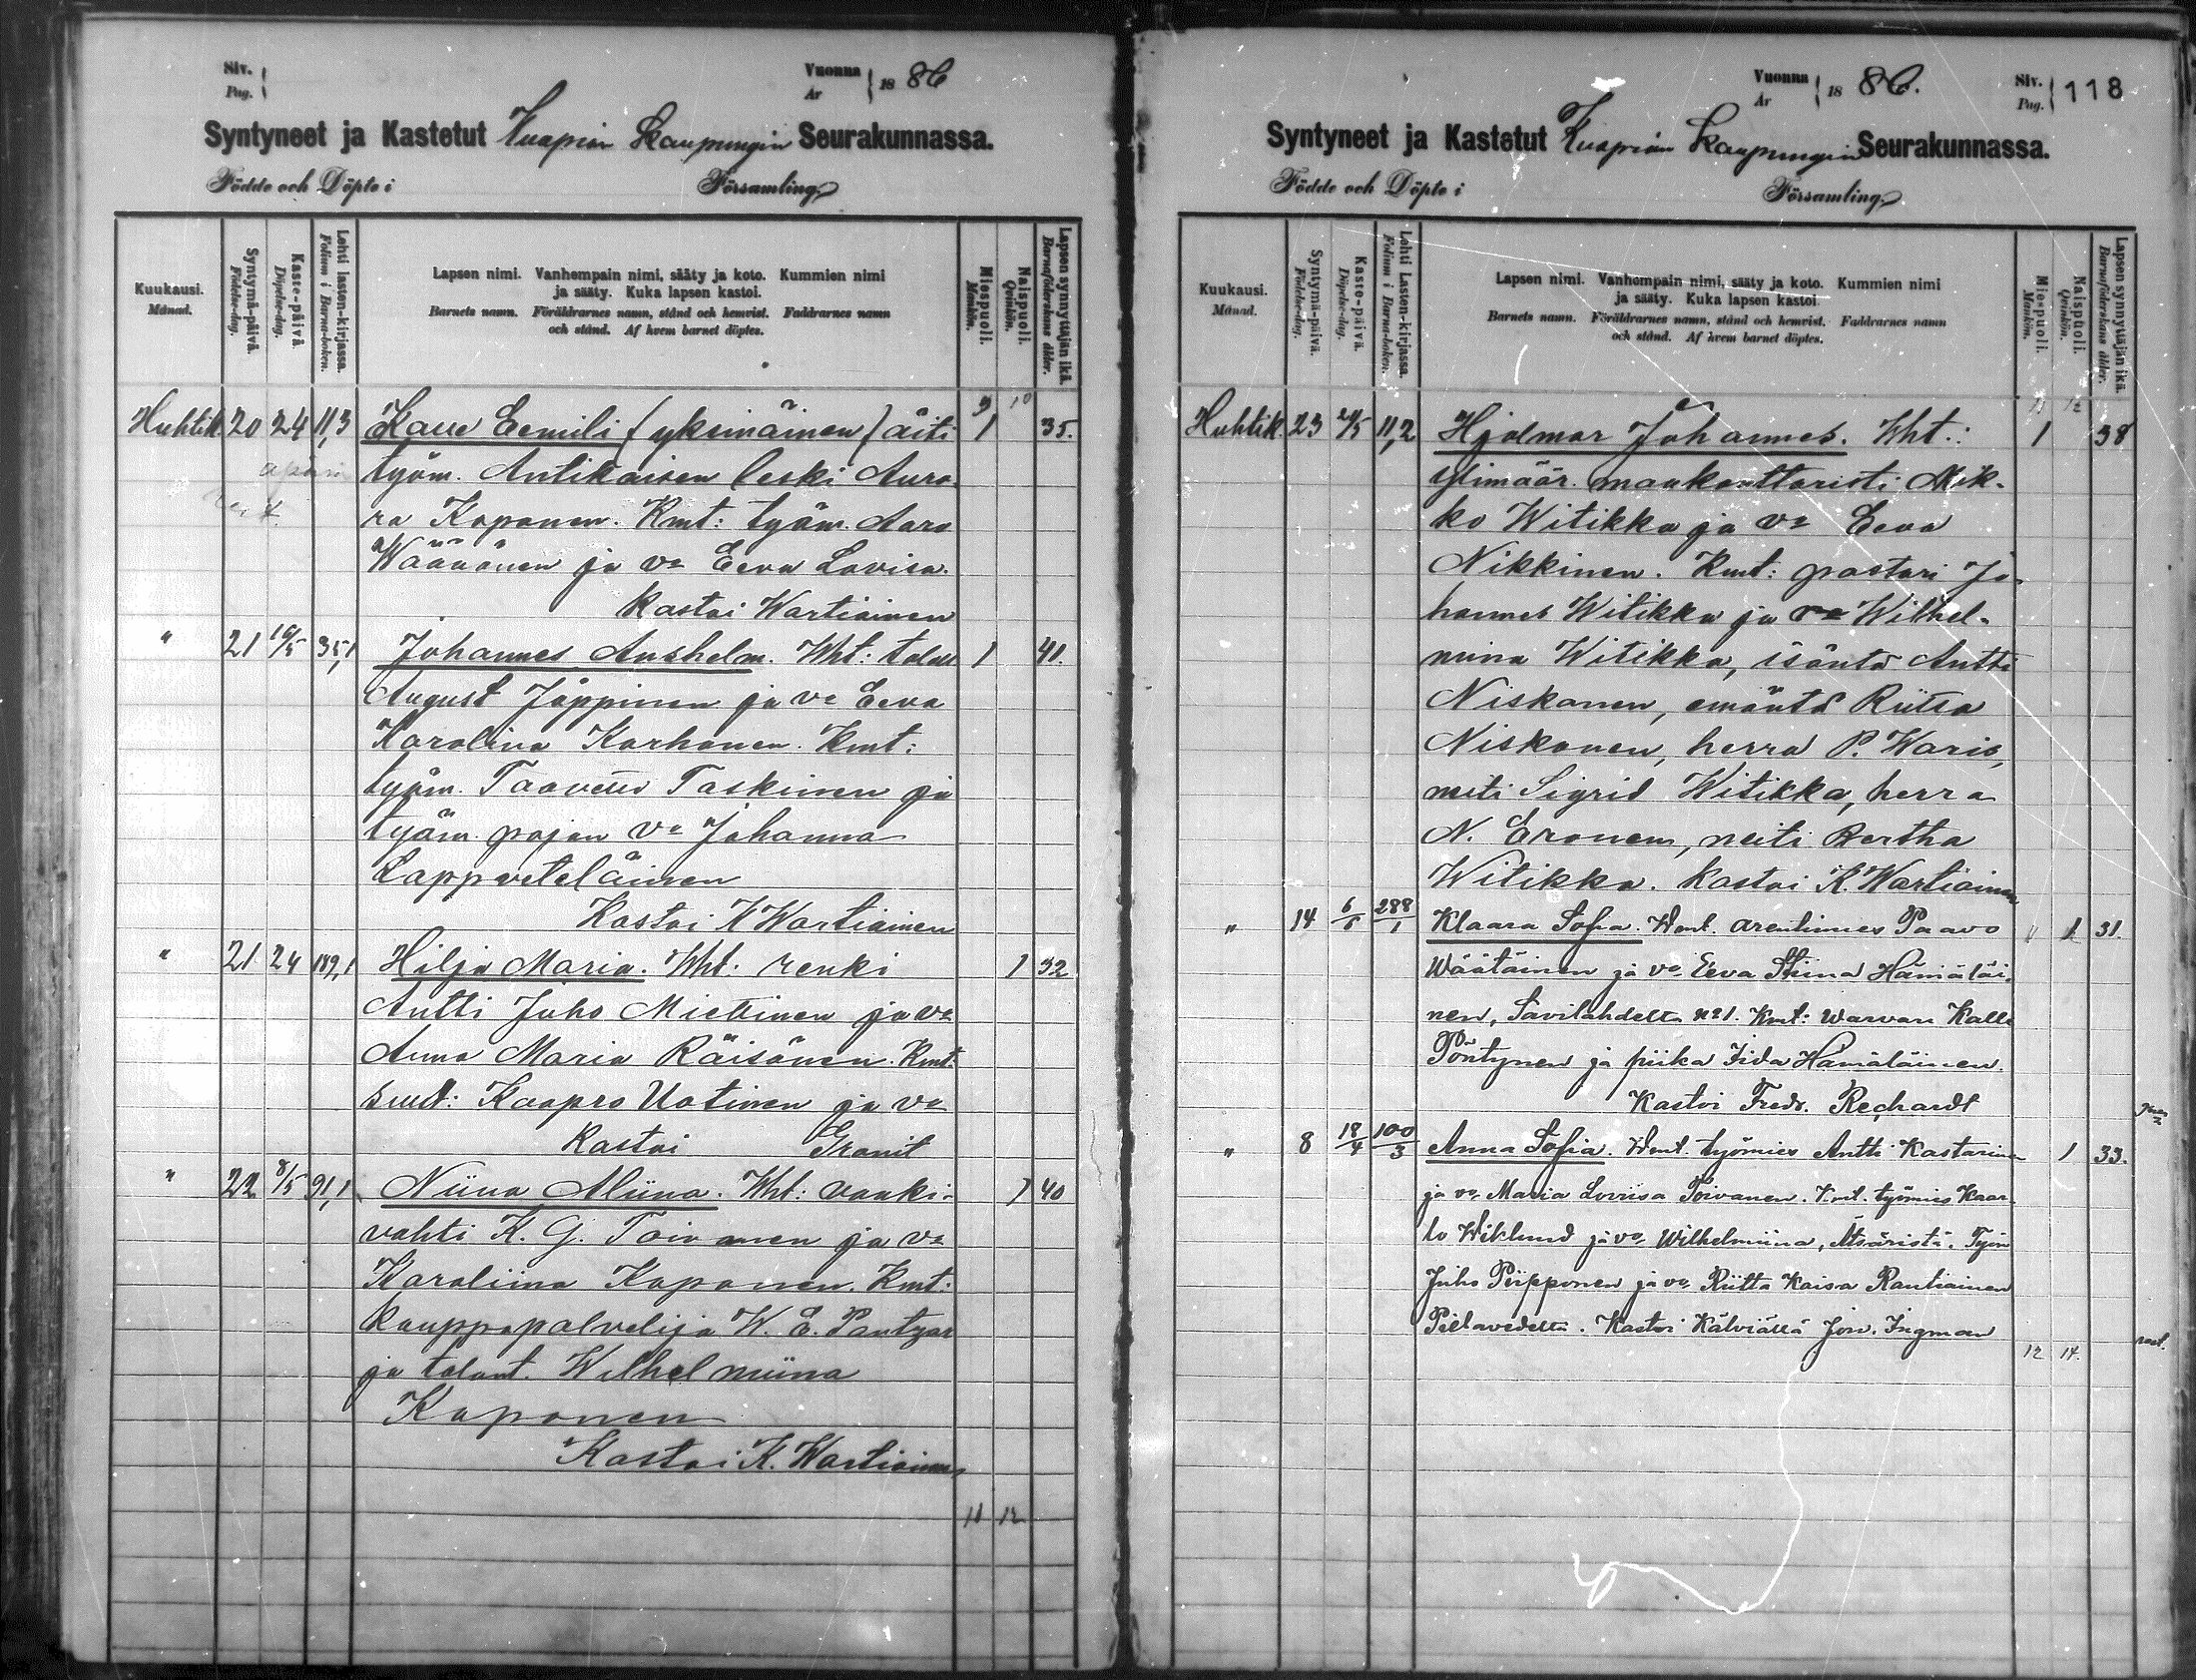 Siv.
Pag.
Vuonna
År
18 86
Syntyneet ja Kastetut Kuopion Kaupungin Seurakunnassa.
Födde och Döpte i Församling
Kuukausi.
Månad.
Syntymä-päivä.
Födelse-dag.
Kaste-päivä.
Döpelse-dag.
Lehti lasten-kirjassa.
Folium i Barna-boken.
Lapsen nimi. Vanhempain nimi, sääty ja koto. Kummien nimi
ja sääty. Kuka lapsen kastoi.
Barnets namn. Föräldrarnes namn, stånd och hemvist. Faddrarnes namn
och stånd. Af hvem barnet döptes.
Miespuoli.
Mankön.
Naispuoli.
Qvinkön.
Lapsen synnyttäjän ikä.
Barnaföderskans ålder.
9 10
Huhtik. 20 24 11,3 Kalle Eemili (yksinäinen) äiti 1 35.
työm. Antikaisen leski Auro-
ra Koponen. Kmt: työm. Aaro
Väänänen ja vo Eeva Lovisa.
Kastoi Wartiainen
" 21 16/5 35,1 Johannes Anshelm. Wht: talol. 1 41.
August Jäppinen ja vo Eeva
Karolina Korhonen. Kmt:
työm. Taavetti Taskinen ja
työm. pojan vo Johanna
Lappeteläinen
Kastoi K Wartiainen
" 21 24 189,1 Hilja Maria. Wht: renki 1 32
Antti Juho Miettinen ja vo
Anna Maria Räisänen. Kmt:
suut: Kaapro Uotinen ja vo
Kastoi Granit
" 22 8/5 91,1 Niina Aliina. Wht: vanki-
1 40
vahti K. G. Toivanen ja vo
Karoliina Koponen. Kmt:
kauppapalvelija W. E. Pantzar
ja talont. Wilhelmiina
Koponen
Kastoi K. Wartiainen
11 12
Vuonna
År
18 86.
Siv.
Pag.
118
Syntyneet ja Kastetut Kuopion Kaupungin Seurakunnassa.
Födde och Döpte i Församling
Kuukausi.
Månad.
Syntymä-päivä.
Födelse-dag.
Kaste-päivä.
Döpelse-dag.
Lehti Lasten-kirjassa.
Folium i Barna-boken.
Lapsen nimi. Vanhempain nimi, sääty ja koto. Kummien nimi
ja sääty. Kuka lapsen kastoi.
Barnets namn. Föräldrarnes namn, stånd och hemvist. Faddrarnes namn
och stånd. Af hvem barnet döptes.
Miespuoli.
Mankön.
Naispuoli.
Qvinkön.
Lapsen synnyttäjän ikä.
Barnaföderskans ålder.
11 12
Huhtik. 23 11,2 Hjalmar Johannes. Wht: 1 38
ylimäär. maakonttoristi Mik-
ko Witikka ja vo Eeva
Nikkinen. Kmt: pastori Jo-
hannes Witikka ja va Wilhel-
mina Witikka, isäntä Antti
Niskanen, emäntä Riitta
Niskanen, herra P. Waris,
neiti Sigrid Witikka, herra
N. Eronen, neiti Bertha
Witikka. Kastoi K. Wartiainen
" 14 6/5 288/1 Klaara Sofia. Wmt. arentimies Paavo 1 31.
Wäätäinen ja vo Eeva Stiina Hämäläi-
nen, Savilahdelta No 1. Kmt: Warvari Kalle
Pöntynen ja piika Iida Hämäläinen.
Kastoi Fredr. Rechardt
" 8 18/4 100/3 Anna Sofia. Wmt. työmies Antti Kastarinen 1 33.
ja vo. Maria Loviisa Toivanen. Kmt. työmies Kaar-
lo Wiklund ja vo. Wilhelmiina, Ätsäristä. Työm
Juho Piipponen ja vo. Riitta Kaisa Rautiainen
Pielavedeltä. Kastoi Kälviällä Jon. Ingman
12 14.